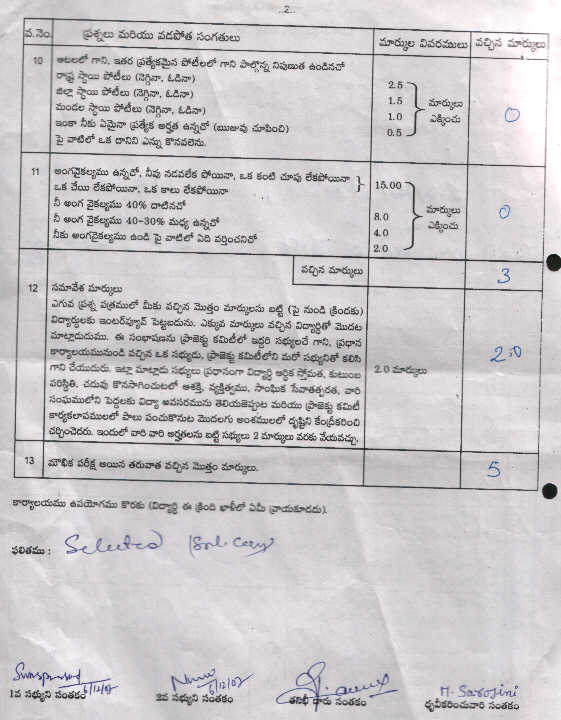 ..2..
వ.నెం. ప్రశ్నలు మరియు వడపోత సంగతులు మార్కుల వివరములు వచ్చిన మార్కులు
10 ఆటలలో గాని, ఇతర ప్రత్యేకమైన పోటీలలో గాని పాల్గొన్న నిపుణుత ఉండినచో
రాష్ట్ర స్థాయి పోటీలు (నెగ్గినా, ఓడినా) 2.5
జిల్లా స్థాయి పోటీలు (నెగ్గినా, ఓడినా) 1.5 మార్కులు
మండల స్థాయి పోటీలు (నెగ్గినా, ఓడినా) 1.0 ఎక్కించు 0
ఇంకా నీకు ఏమైనా ప్రత్యేక అర్హత ఉన్నచో (ఋజువు చూపించి) 0.5
పై వాటిలో ఒక దానిని ఎన్ను కొనవలెను.
11 అంగవైకల్యము ఉన్నచో, నీవు నడవలేక పోయినా, ఒక కంటి చూపు లేకపోయినా
ఒక చేయి లేకపోయినా, ఒక కాలు లేకపోయినా 15.00
నీ అంగ వైకల్యము 40% దాటినచో మార్కులు 0
నీ అంగ వైకల్యము 40-30% మధ్య ఉన్నచో 8.0 ఎక్కించు
నీకు అంగవైకల్యము ఉండి పై వాటిలో ఏది వర్తించనిచో 4.0
2.0
వచ్చిన మార్కులు 3
12 సమావేశ మార్కులు
ఎగువ ప్రశ్న పత్రములో మీకు వచ్చిన మొత్తం మార్కులను బట్టి (పై నుండి క్రిందకు)
విద్యార్థులకు ఇంటర్వ్యూన్ పెట్టబడును. ఎక్కువ మార్కులు వచ్చిన విద్యార్థితో మొదట
మాట్లాడుదుము. ఈ సంభాషణను ప్రాజెక్టు కమిటీలో ఇద్దరి సభ్యులచే గాని, ప్రధాన
కార్యాలయమునుండి వచ్చిన ఒక సభ్యుడు, ప్రాజెక్టు కమిటీలోని మరో సభ్యునితో కలిసి
గాని చేయుదురు. ఇట్లా మాట్లాడు సభ్యులు ప్రధానంగా విద్యార్థి ఆర్థిక స్తోమత, కుటుంబ 2.0 మార్కులు 2.0
పరిస్థితి, చదువు కొనసాగించుటలో ఆశక్తి, వ్యక్తిత్వము, సాంఘిక సేవాతత్పరత, వారి
సంఘములోని పెద్దలకు విద్యా అవసరమును తెలియజెప్పుట మరియు ప్రాజెక్టు కమిటీ
కార్యకలాపములలో పాలు పంచుకొనుట మొదలగు అంశములలో దృష్టిని కేంద్రీకరించి
చర్చించెదరు. ఇందులో వారి వారి అర్హతలను బట్టి సభ్యులు 2 మార్కులు వరకు వేయవచ్చు.
13 మౌఖిక పరీక్ష అయిన తరువాత వచ్చిన మొత్తం మార్కులు. 5
కార్యాలయము ఉపయోగము కొరకు (విద్యార్థి ఈ క్రింది ఖాళీలో ఏమీ వ్రాయకూడదు).
ఫలితము : Selected
6/12/07 6/12/07 M. Sarojini
1వ సభ్యుని సంతకం 2వ సభ్యుని సంతకం తనిఖీ దారు సంతకం ధృవీకరించువారి సంతకం